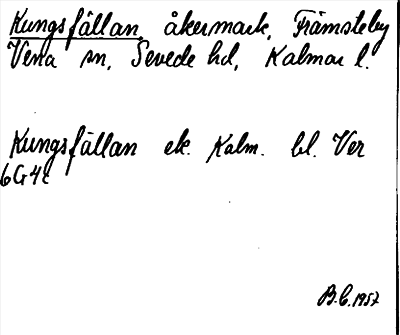 Kungsfällan, åkermark, Främsteby
Vena sn, Sevede hd, Kalmar l.
Kungsfällan ek. Kalm. bl. Ver
6G4c
B.C. 1957